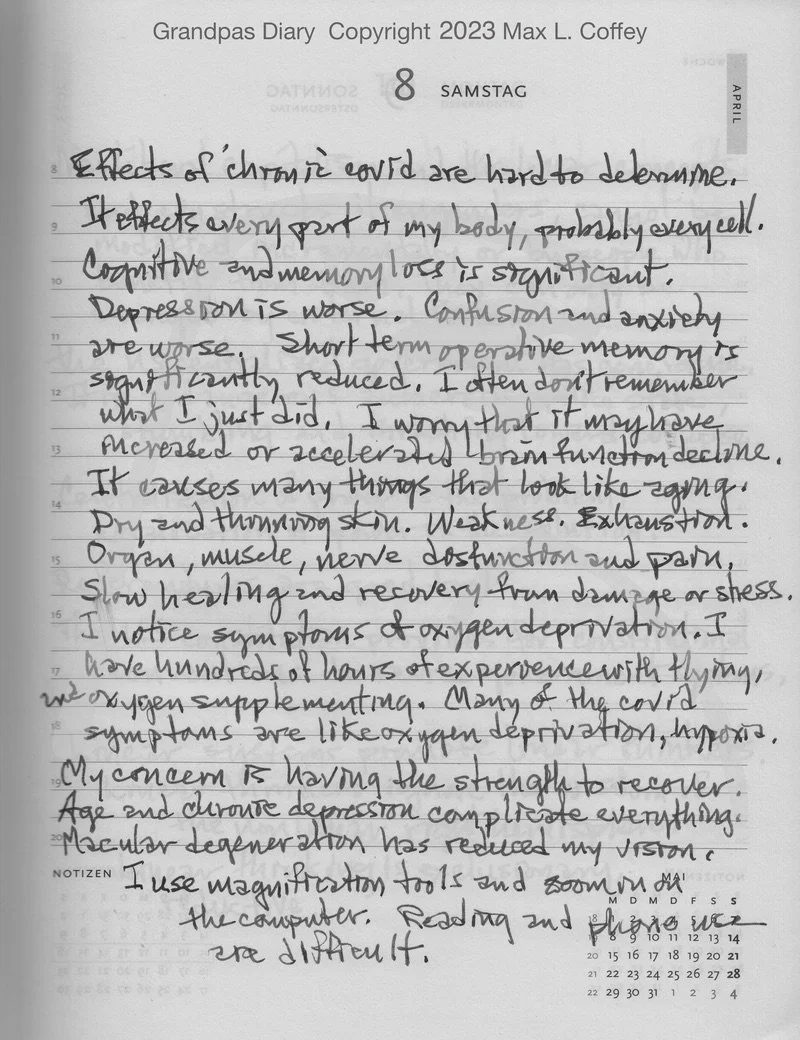 Grandpas Diary Copyright 2023 Max L. Coffey
8 SAMSTAG
APRIL
8 Effects of 'chronic covid are hard to determine.
9 It effects every part of my body, probably every cell.
10 Cognitive and memory loss is significant.
Depression is worse. Confusion and anxiety
11 are worse. Short term operative memory is
significantly reduced. I often don't remember
12 what I just did. I worry that it may have
13 increased or accelerated brain function decline.
It causes many things that look like aging.
14 Dry and thinning skin. Weakness. Exhaustion.
15 Organ, muscle, nerve disfunction and pain.
Slow healing and recovery from damage or stress.
16 I notice symptoms of oxygen deprivation. I
17 have hundreds of hours of experience with flying,
and oxygen supplementing. Many of the covid
18 symptoms are like oxygen deprivation, hypoxia.
19 My concern is having the strength to recover.
Age and chronic depression complicate everything.
20 Macular degeneration has reduced my vision.
NOTIZEN I use magnification tools and zoom in on
the computer. Reading and phone use
are difficult.
MAI
M D M D F S S
18 1 2 3 4 5 6 7
19 8 9 10 11 12 13 14
20 15 16 17 18 19 20 21
21 22 23 24 25 26 27 28
22 29 30 31 1 2 3 4